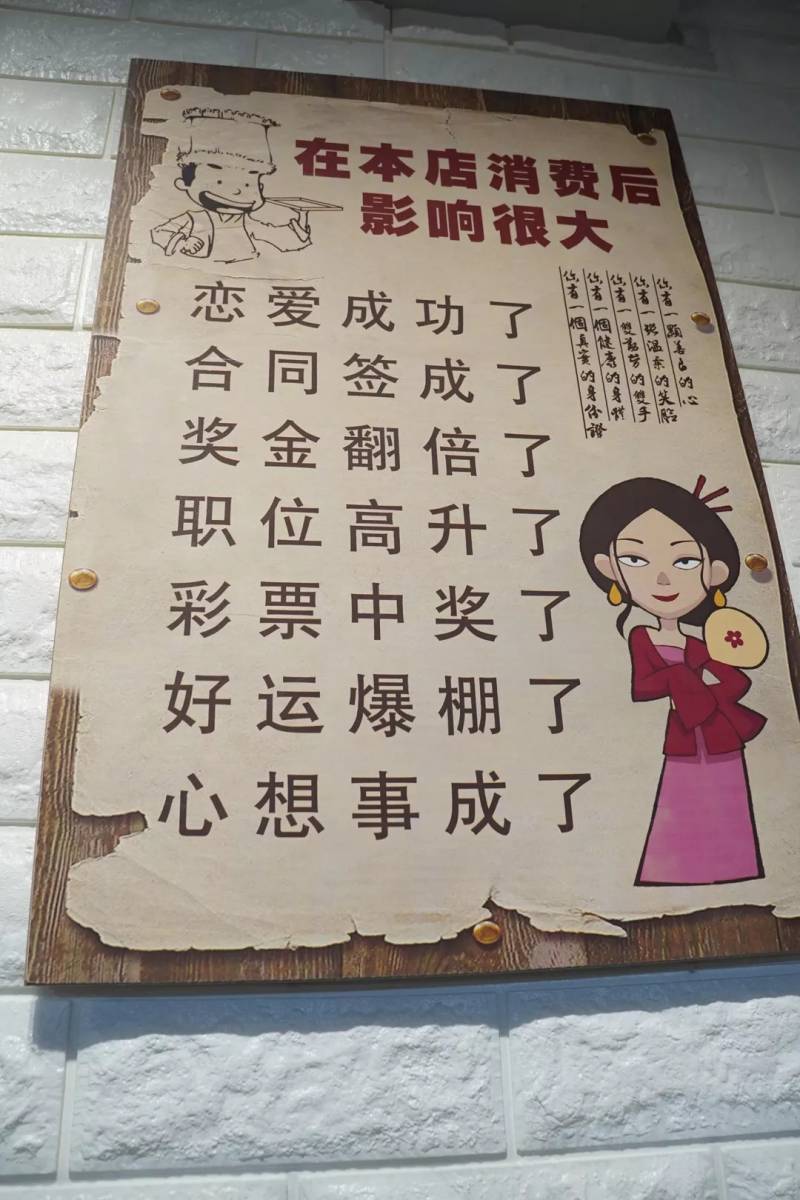 在本店消费后
影响很大
恋爱成功了
合同签成了
奖金翻倍了
职位高升了
彩票中奖了
好运爆棚了
心想事成了
你有一顆善良的心
你有一張溫柔的笑臉
你有一雙勤勞的雙手
你有一個健康的身體
你有一個真實的身份證